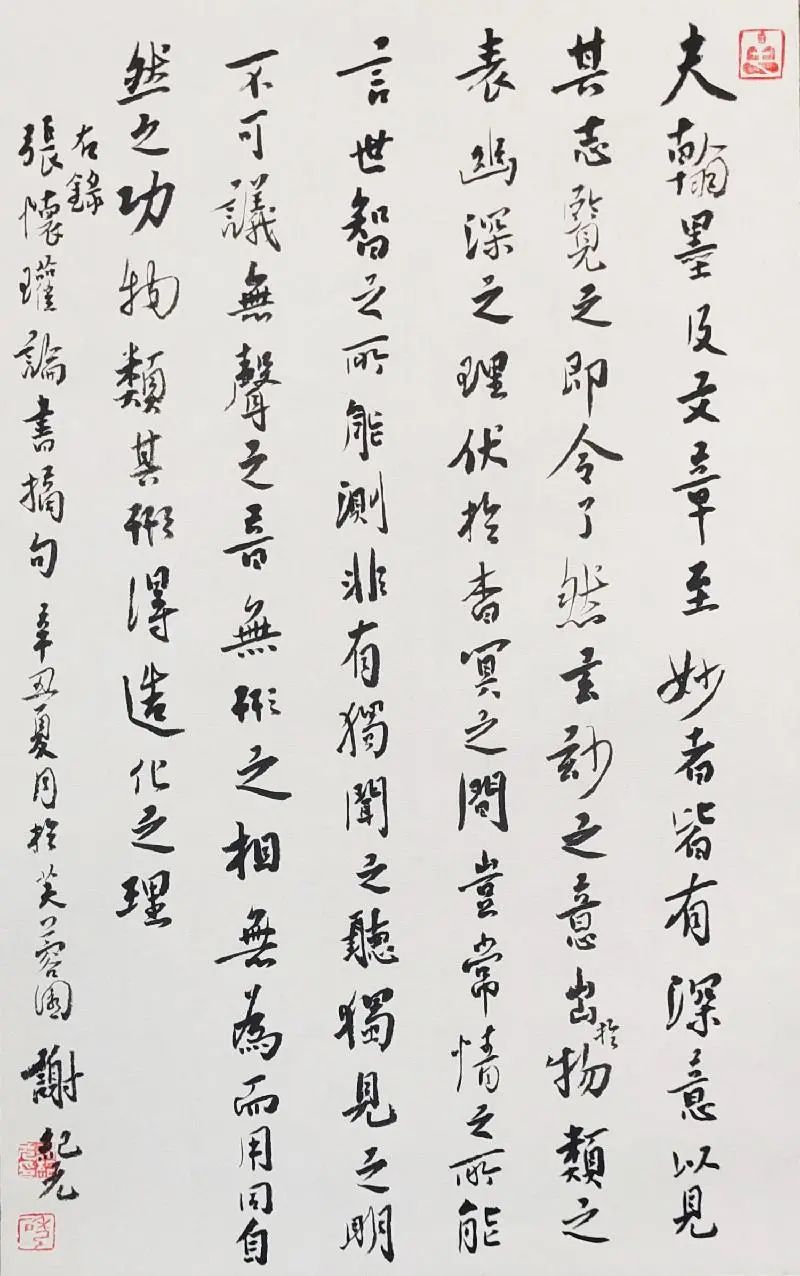 夫翰墨及文章至妙者皆有深意以見
其志覽之即令了然玄妙之意出於物類之
表幽深之理伏於杳冥之間豈常情之所能
言世智之所能測非有獨聞之聽獨見之明
不可議無聲之音無形之相無為而用同自
然之功物類其形得造化之理
右錄
張懷瓘論書摘句 辛丑夏月於芙蓉園 謝紀元